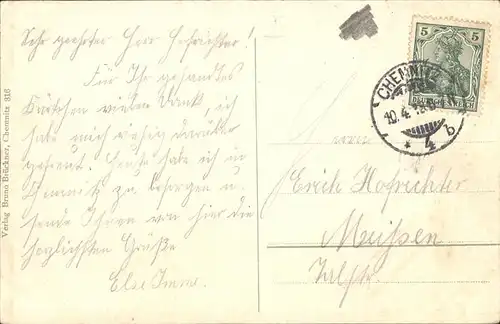 Sehr geehrter Herr Hofrichter!
Für Ihr gesandtes
Kärtchen vielen Dank, ich
habe mich riesig darüber
gefreut. Heute habe ich in
Chemnitz zu besorgen u.
sende Ihnen von hier die
herzlichsten Grüße
Else
Verlag Bruno Brückner, Chemnitz 316
5 5
CHEMNITZ
10.4.
* 4 b
Erich Hofrichter
Meissen